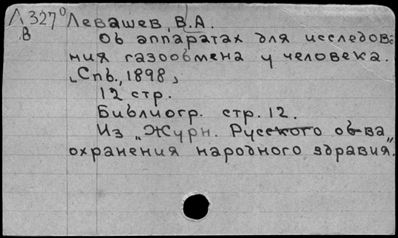 Л 327⁰ Левашев, В.А.
В Об аппаратах для исследова-
ния газообмена у человека.
[Спб., 1898]
12 стр.
Библиогр. стр. 12.
Из „Журн. Русского об-ва
охранения народного здравия."